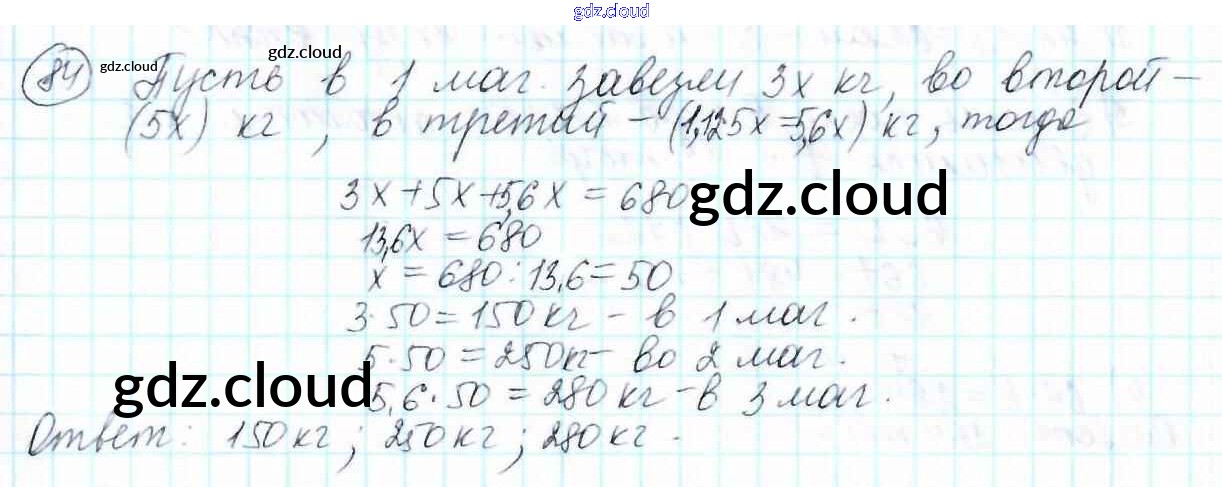 gdz.cloud
84 gdz.cloud gdz.cloud
Пусть в 1 маг. завезли 3х кг, во второй –
(5х) кг, в третий – (1,125х=5,6х) кг, тогда
3х+5х+5,6х = 680 gdz.cloud
13,6х = 680
х = 680:13,6=50
3·50=150кг – в 1 маг.
5·50=250кг – во 2 маг.
gdz.cloud 5,6·50=280кг – в 3 маг.
Ответ: 150кг; 250кг; 280кг.